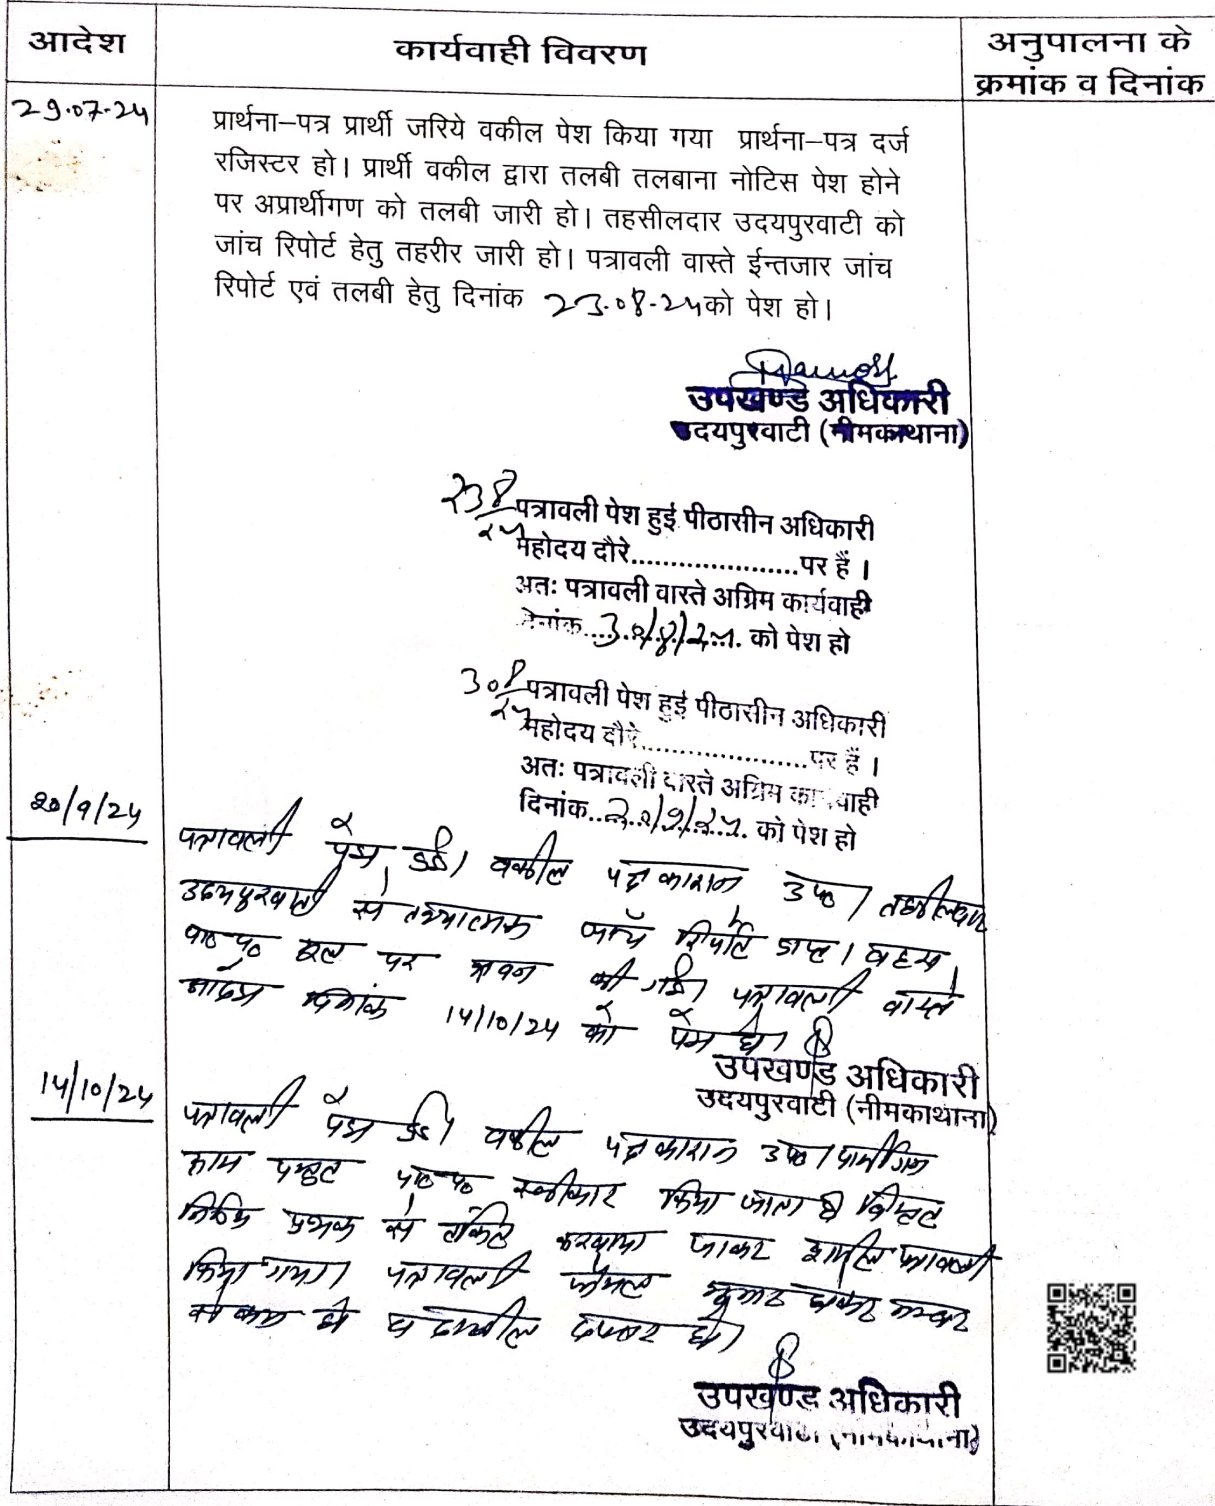 आदेश
कार्यवाही विवरण
अनुपालना के
क्रमांक व दिनांक
29.07.24
प्रार्थना–पत्र प्रार्थी जरिये वकील पेश किया गया प्रार्थना–पत्र दर्ज
रजिस्टर हो। प्रार्थी वकील द्वारा तलबी तलबाना नोटिस पेश होने
पर अप्रार्थीगण को तलबी जारी हो। तहसीलदार उदयपुरवाटी को
जांच रिपोर्ट हेतु तहरीर जारी हो। पत्रावली वास्ते ईन्तजार जांच
रिपोर्ट एवं तलबी हेतु दिनांक 23.08.24 को पेश हो।
उपखण्ड अधिकारी
उदयपुरवाटी (नीमकाथाना)
23/8/24 पत्रावली पेश हुई पीठासीन अधिकारी
महोदय दौरे.....................पर हैं ।
अतः पत्रावली वास्ते अग्रिम कार्यवाही
दिनांक...30/8/24... को पेश हो
30/8/24 पत्रावली पेश हुई पीठासीन अधिकारी
महोदय दौरे.....................पर हैं ।
अतः पत्रावली वास्ते अग्रिम कार्यवाही
दिनांक...20/9/24... को पेश हो
20/9/24
पत्रावली पेश हुई। वकील पक्षकारान उप०। तहसीलदार
उदयपुरवाटी से तथ्यात्मक जाँच रिपोर्ट प्राप्त। बहस
प्रा०प० मूल पर श्रवण की गई। पत्रावली वास्ते
आदेश दिनांक 14/10/24 को पेश हो।
उपखण्ड अधिकारी
उदयपुरवाटी (नीमकाथाना)
14/10/24
पत्रावली पेश हुई। वकील पक्षकारान उप०।
प्रस्तुत प्रा०प० स्वीकार किया जाता है। विस्तृत
निर्णय पृथक से टंकित करवाया जाकर शामिल पत्रावली
किया गया। पत्रावली फैसल शुमार होकर नम्बर
से कम हो व दाखिल दफ्तर हो।
उपखण्ड अधिकारी
उदयपुरवाटी (नीमकाथाना)